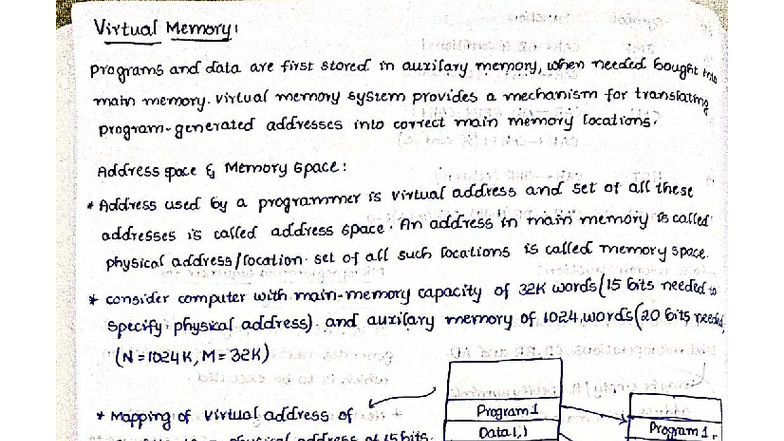 Virtual Memory:
programs and data are first stored in auxilary memory, when needed bought into
main memory. virtual memory system provides a mechanism for translating
program-generated addresses into correct main memory locations.
Address space & Memory Space:
* Address used by a programmer is virtual address and set of all these
addresses is called address space. An address in main memory is called
physical address/location. set of all such locations is called memory space.
* consider computer with main-memory capacity of 32K words (15 bits needed to
specify physical address) and auxilary memory of 1024 words (20 bits needed
(N=1024K, M=32K)
* Mapping of virtual address of
physical address of 15 bits.
Program 1
Data 1,1
Program 1